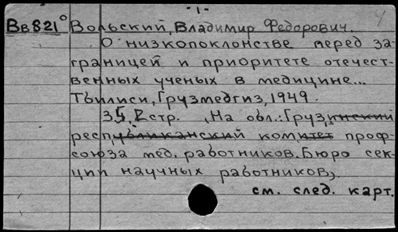 -1-
Вв821° Вольский, Владимир Федорович.
О низкопоклонстве перед за-
границей и приоритете отечест-
венных ученых в медицине...
Тбилиси, Грузмедгиз, 1949.
35, 2 стр. „На обл.: Грузинский
республиканский комитет проф-
союза мед. работников. Бюро сек-
ции научных работников„.
см. след. карт.